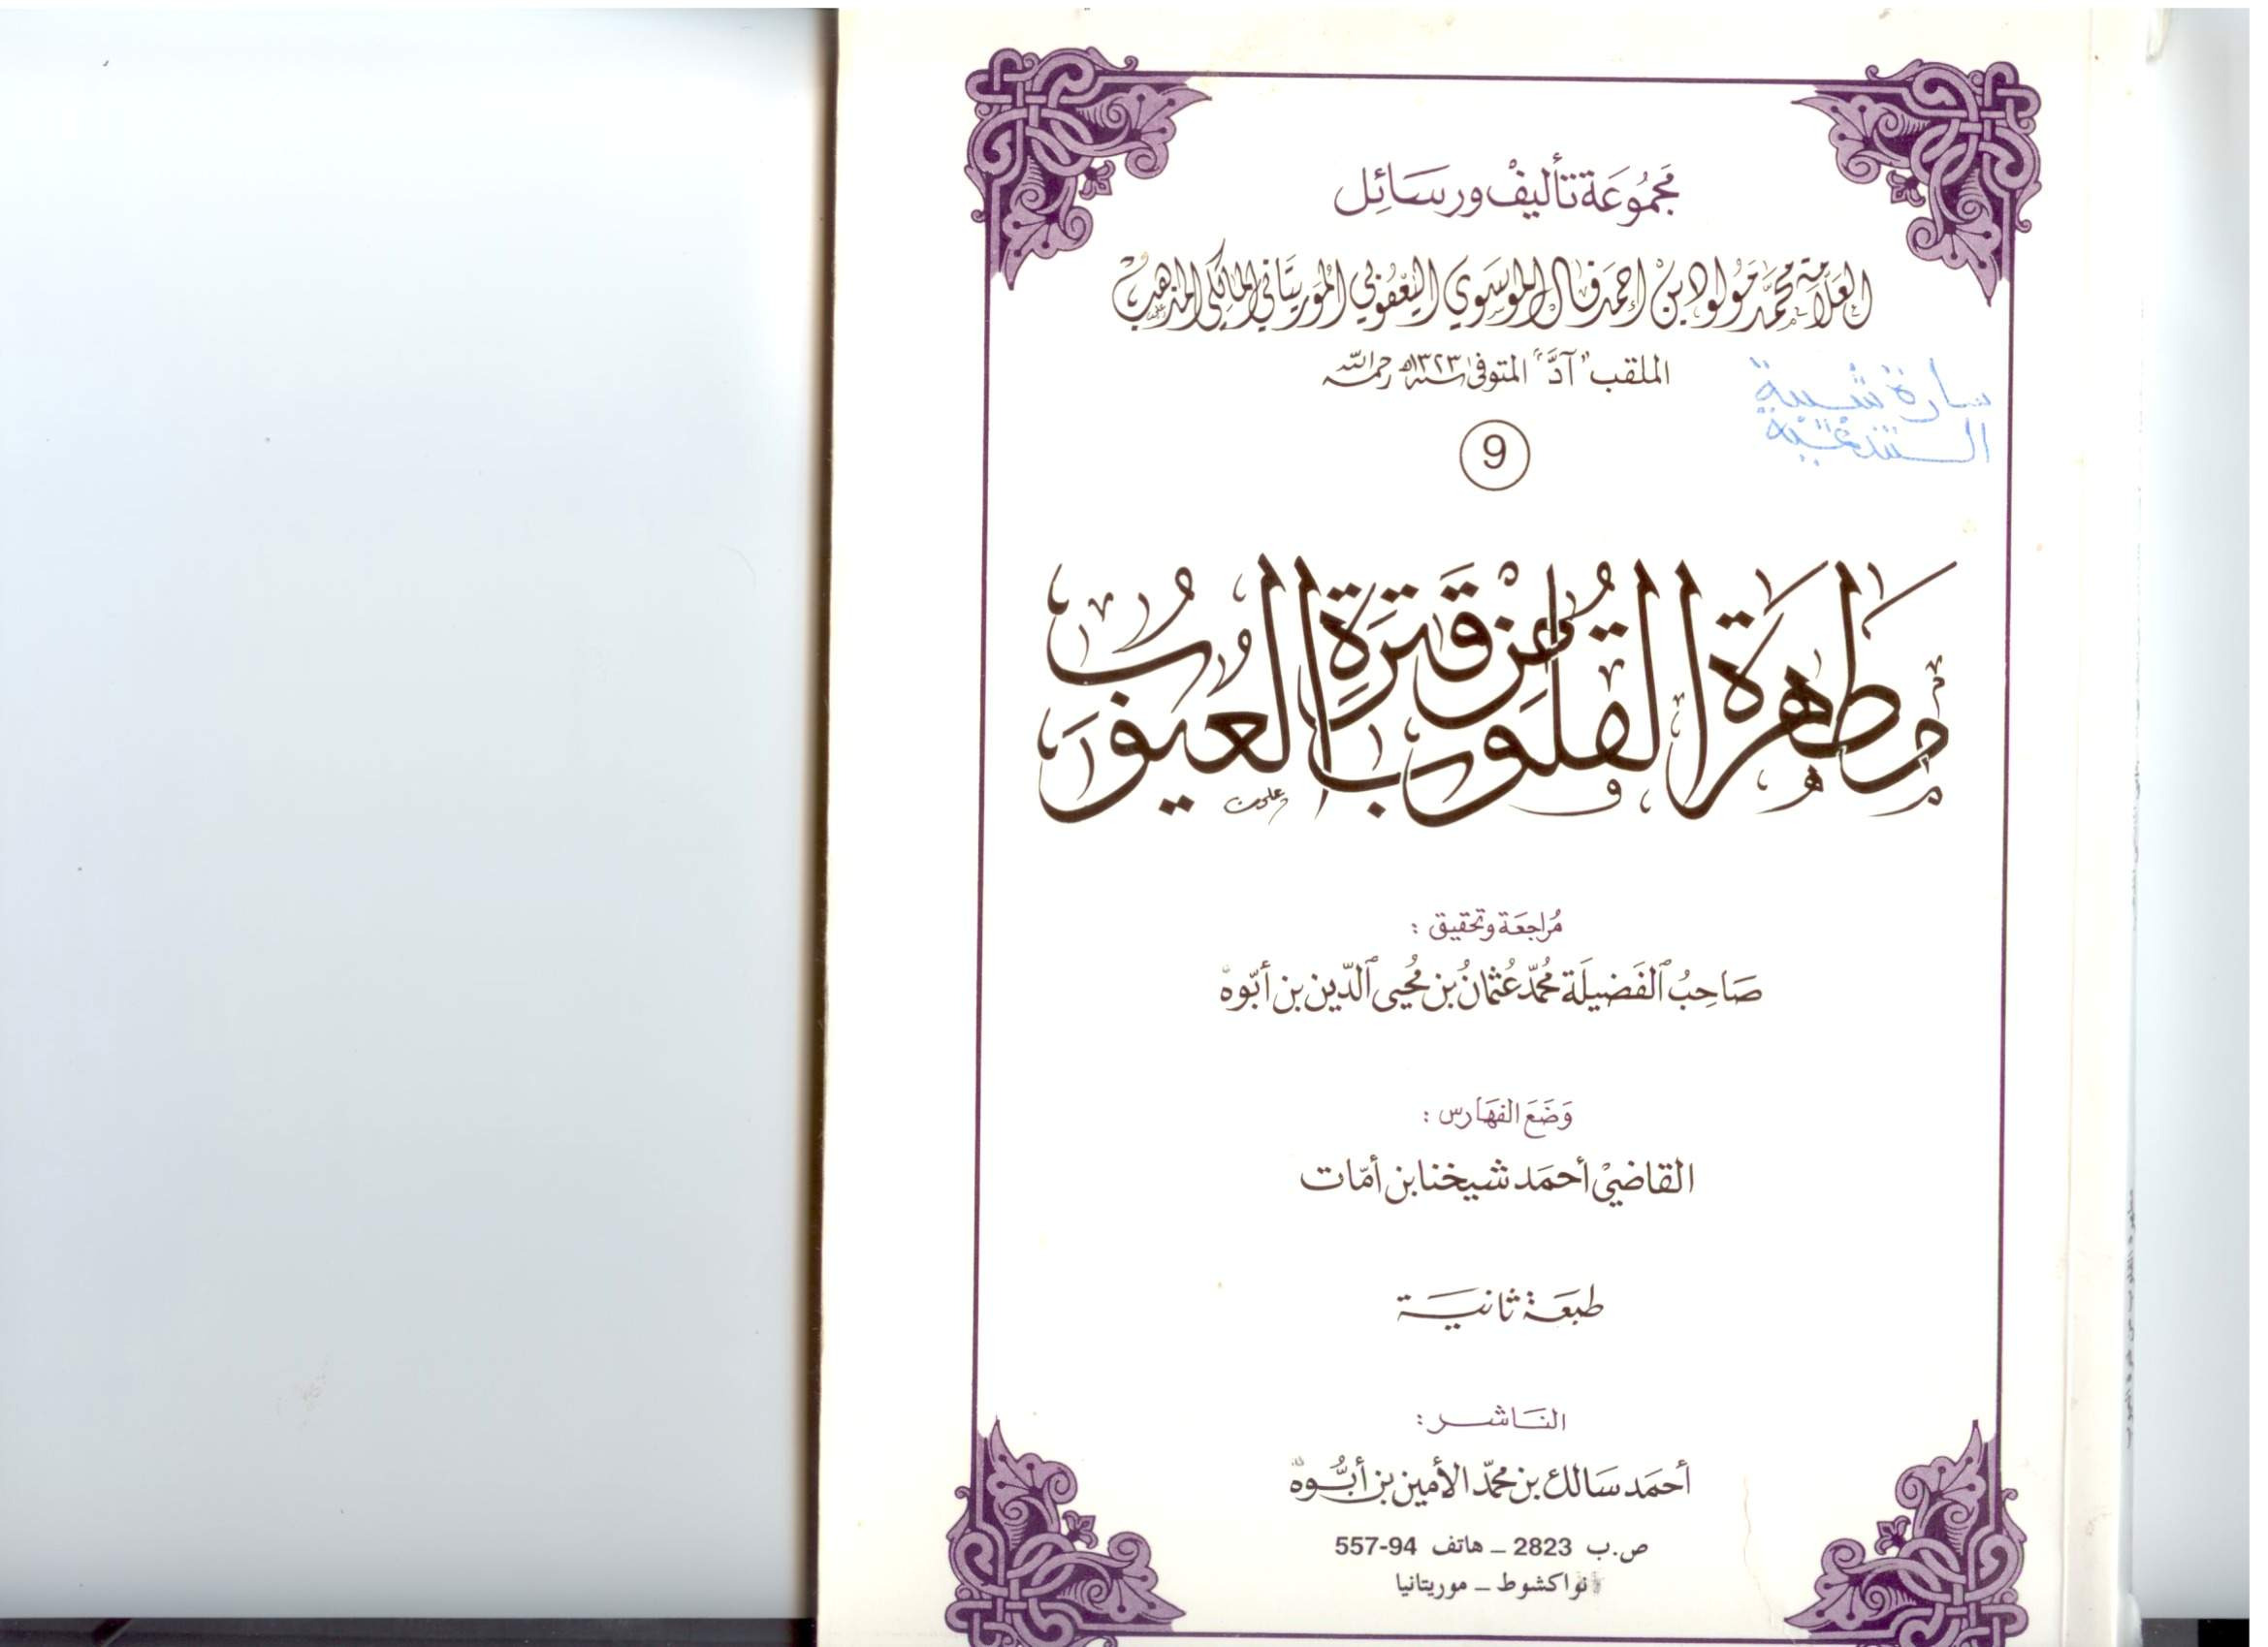 مَجمُوعَة تأليفْ ورسَائِل
العَلاّمَة مُحمَّد مَولُود بنْ احمَد فَال الموسَوي اليَعْقوُبي الموُريتَاني المالِكي المذهَبْ
الملقب "آدَّ" المتوفىٰ سنة ١٣٢٣ه رحمه الله
سارة شيبة
9
مَطهَرَة القُلوُب عَنْ قتَرَةِ العُيوُبُ
مُراجعَة وتحقيق :
صَاحِبُ الفَضيلَة مُحمّد عُثمانُ بن مُحيى الدّين بن أبّوه
وَضَعَ الفهَارس :
القاضيْ أحمَد شيخنا بن أمّات
طبعَة ثانيَة
النَاشر :
أحمَد سَالك بن محمّد الأمين بن أبُّوه
ص.ب 2823 ــ هاتف 94-557
نواكشوط ــ موريتانيا